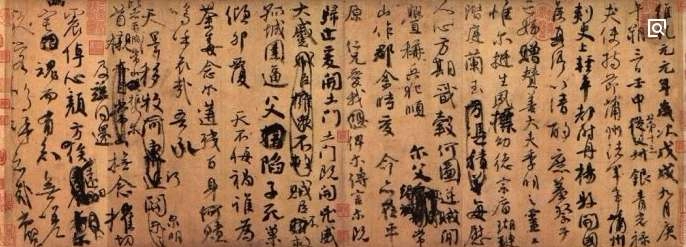 維乾元元年歲次戊戌九月庚
午朔三日壬申第十三叔銀青光祿
夫使持節蒲州諸軍事蒲州
刺史上輕車都尉丹楊縣開國
侯真卿以清酌庶羞祭于
亡姪贈贊善大夫季明之靈
惟爾挺生夙標幼德宗廟瑚璉
階庭蘭玉每慰
人心方期戩穀何圖逆賊閒
釁稱兵犯順爾父常
山作郡余時受命在平
原仁兄愛我俾爾傳言爾既
歸止爰開土門土門既開凶威
大蹙賊臣不救
孤城圍逼父陷子死巢
傾卵覆天不悔禍誰為
荼毒念爾遘殘百身何贖
嗚呼哀哉吾承
天澤移牧河關泉明
首櫬及茲同還撫念摧切
震悼心顏方俟
魂而有知無嗟